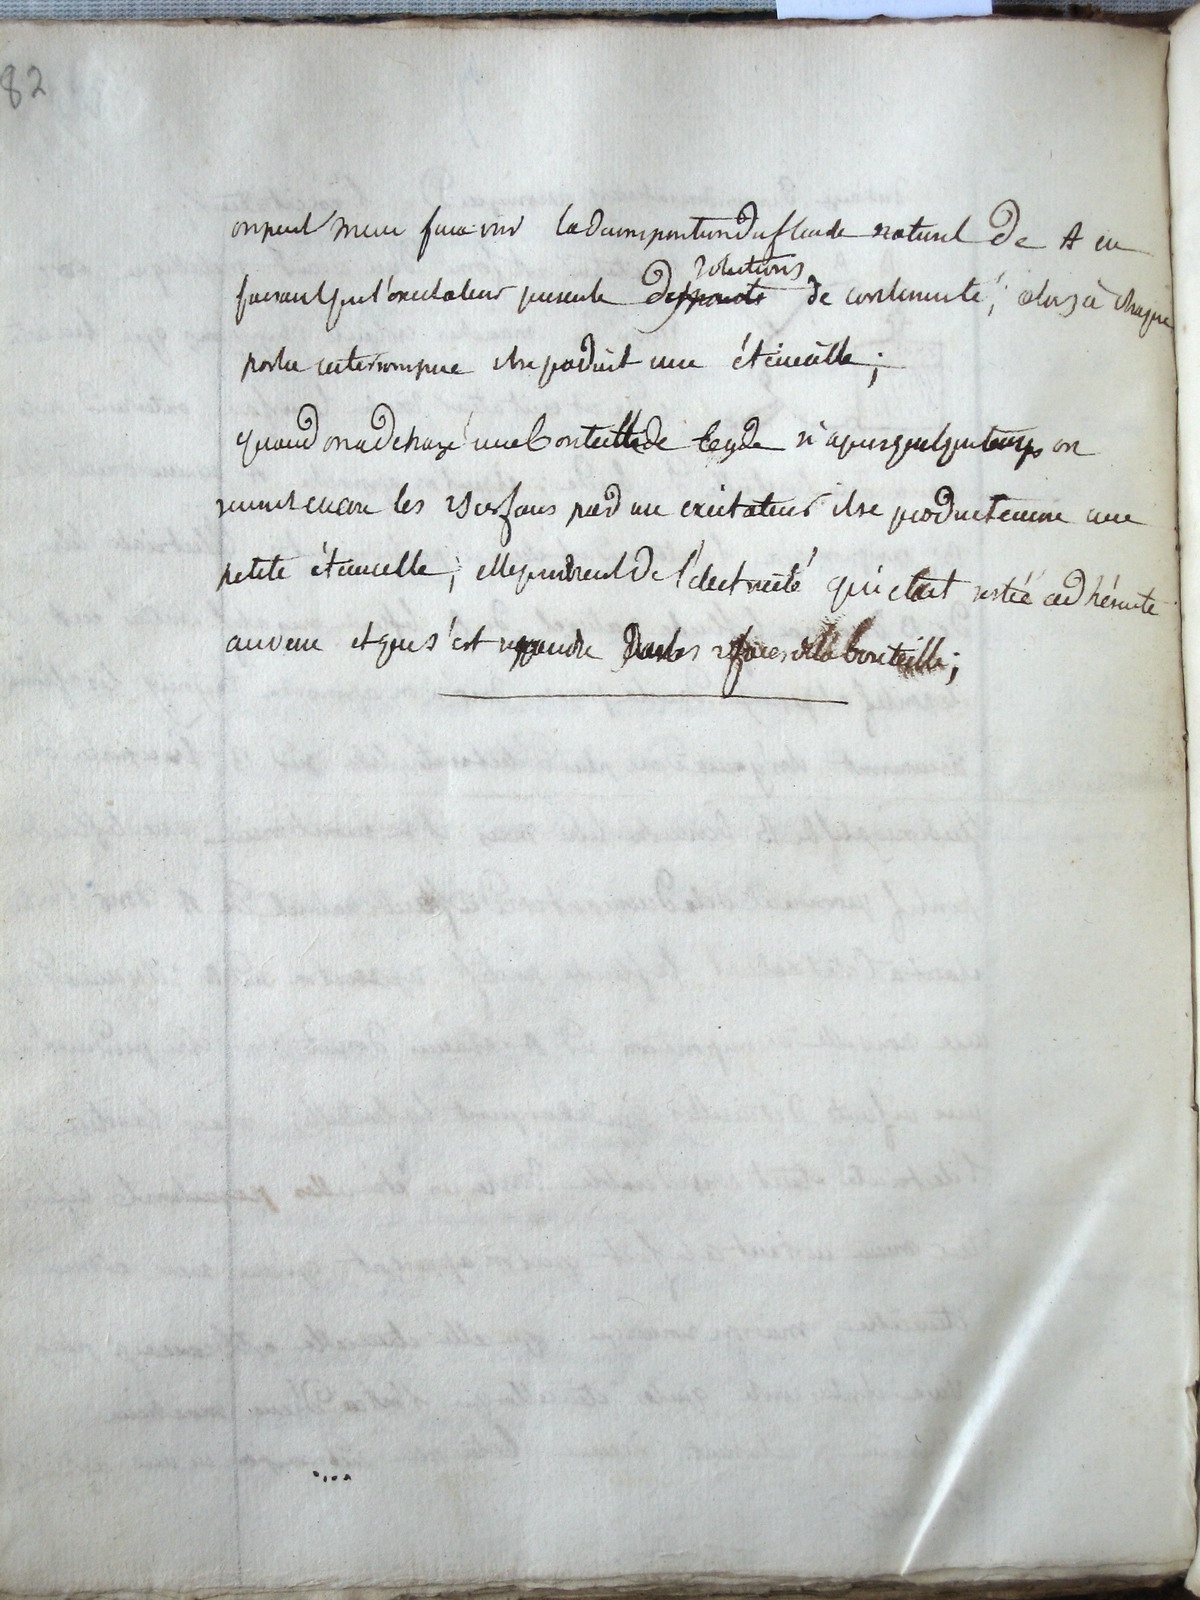 82
on peut meme faire voir la decomposition du fluide naturel de A en
faisant que l'excitateur presente des points solutions de continuité, alors à chaque
partie interrompue il se produit une étincelle;
quand on a dechargé une bouteille de leyde si apres quelque temps on
reunit encore les 2 surfaces par un excitateur il se produit encore une
petite étincelle; elle provient de l'électricité qui etait restée adhérente
au verre et qui s'est repandue dans les 2 faces de la bouteille;